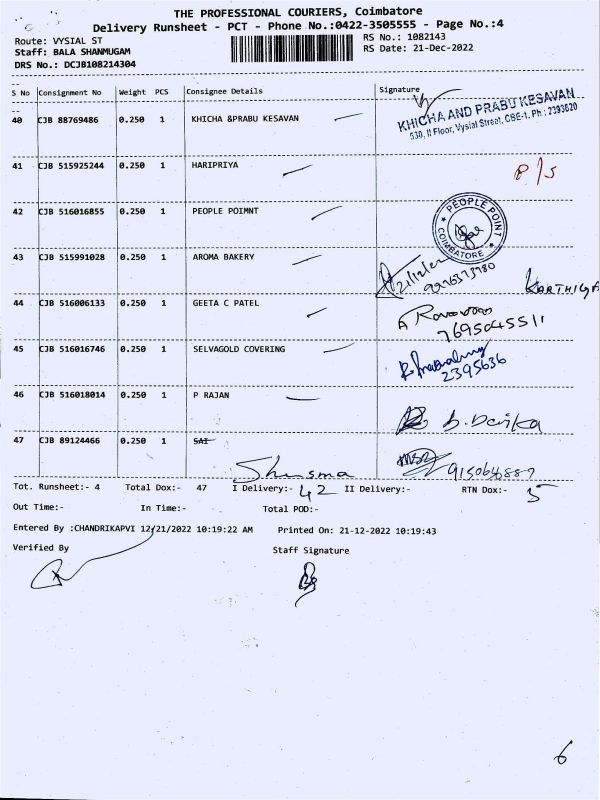 THE PROFESSIONAL COURIERS, Coimbatore
Delivery Runsheet - PCT - Phone No.:0422-3505555 - Page No.:4
Route: VYSIAL ST
RS No.: 1082143
Staff: BALA SHANMUGAM
RS Date: 21-Dec-2022
DRS No.: DCJB108214304
S No Consignment No Weight PCS Consignee Details Signature
40 CJB 88769486 0.250 1 KHICHA &PRABU KESAVAN
KHICHA AND PRABU KESAVAN
530, II Floor, Vysial Street, CBE-1. Ph : 2393620
41 CJB 515925244 0.250 1 HARIPRIYA P/S
42 CJB 516016855 0.250 1 PEOPLE POIMNT
PEOPLE POINT
COIMBATORE
43 CJB 515991028 0.250 1 AROMA BAKERY
44 CJB 516006133 0.250 1 GEETA C PATEL
7695045511
45 CJB 516016746 0.250 1 SELVAGOLD COVERING
2395636
46 CJB 516018014 0.250 1 P RAJAN
b. Devika
47 CJB 89124466 0.250 1 SAI
Shusma
Tot. Runsheet:- 4 Total Dox:- 47 I Delivery:- 42 II Delivery:- RTN Dox:- 5
Out Time:- In Time:- Total POD:-
Entered By :CHANDRIKAPVI 12/21/2022 10:19:22 AM Printed On: 21-12-2022 10:19:43
Verified By Staff Signature
6